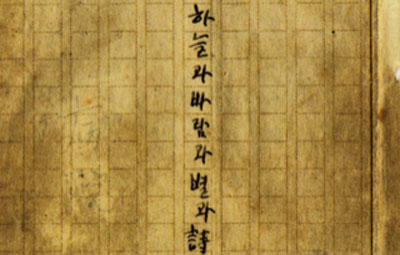 하늘과바람과별과詩